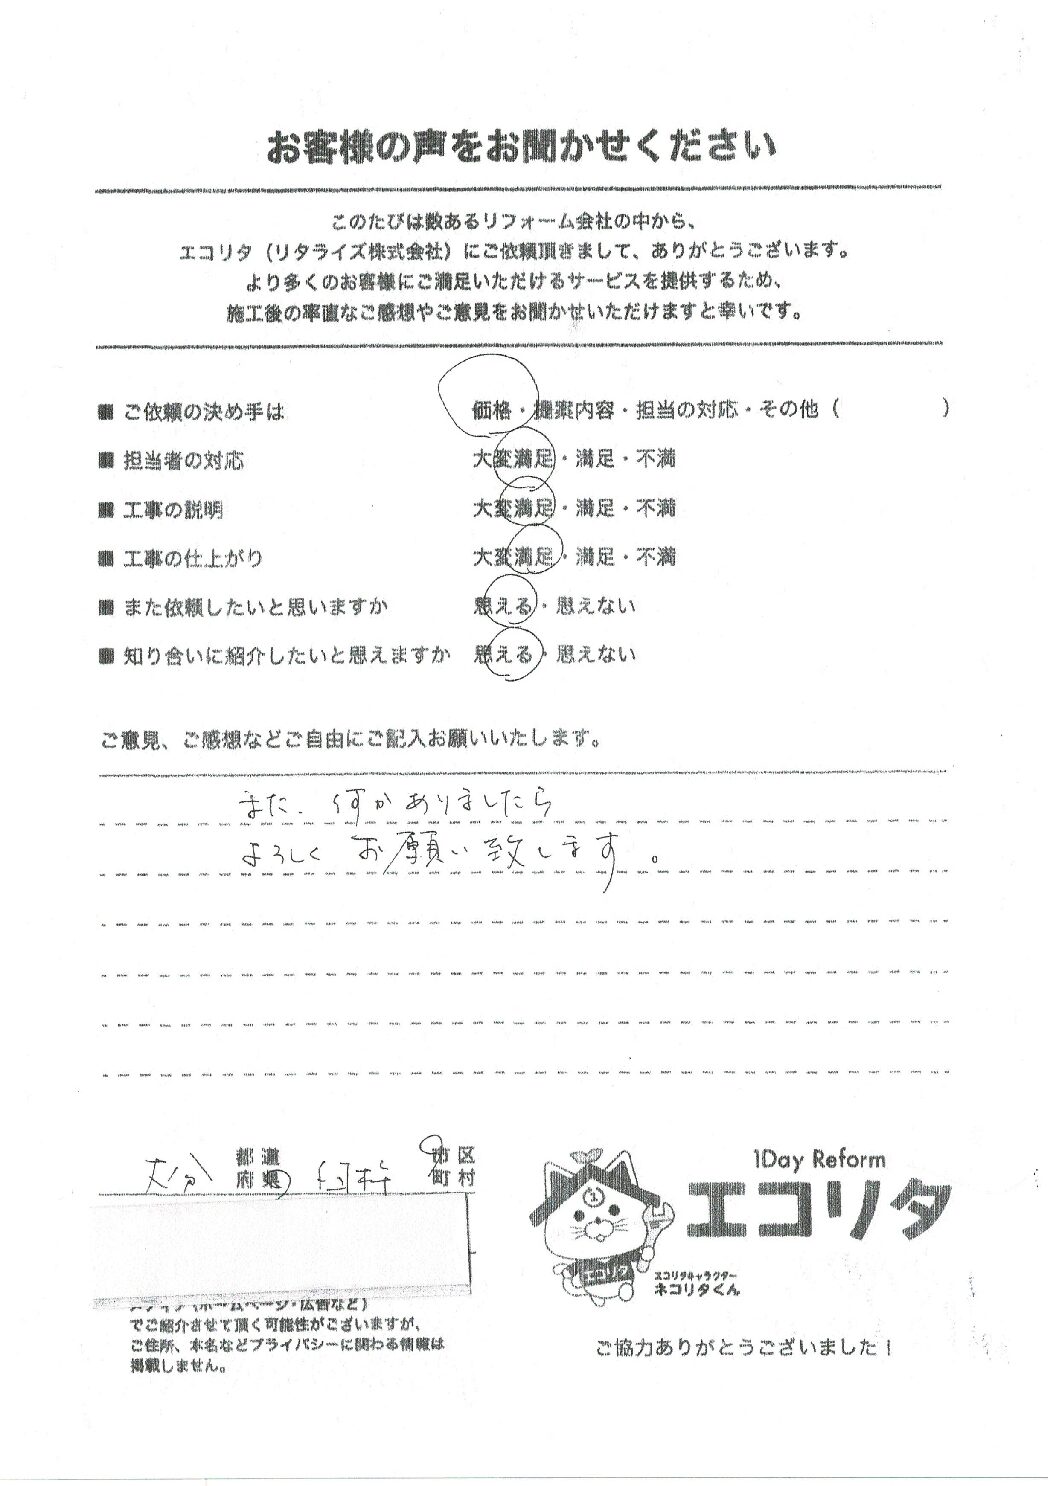 お客様の声をお聞かせください
このたびは数あるリフォーム会社の中から、
エコリタ（リタライズ株式会社）にご依頼頂きまして、ありがとうございます。
より多くのお客様にご満足いただけるサービスを提供するため、
施工後の率直なご感想やご意見をお聞かせいただけますと幸いです。
■ ご依頼の決め手は 価格・提案内容・担当の対応・その他（ ）
■ 担当者の対応 大変満足・満足・不満
■ 工事の説明 大変満足・満足・不満
■ 工事の仕上がり 大変満足・満足・不満
■ また依頼したいと思いますか 思える・思えない
■ 知り合いに紹介したいと思えますか 思える・思えない
ご意見、ご感想などご自由にご記入お願いいたします。
また、何かありましたら
よろしく お願い致します。
大分 都道府県 臼杵 市区町村
メディア（ホームページ・広告など）
でご紹介させて頂く可能性がございますが、
ご住所、本名などプライバシーに関わる情報は
掲載しません。
1Day Reform
エコリタ
①
エコリタ
エコリタキャラクター
ネコリタくん
ご協力ありがとうございました！